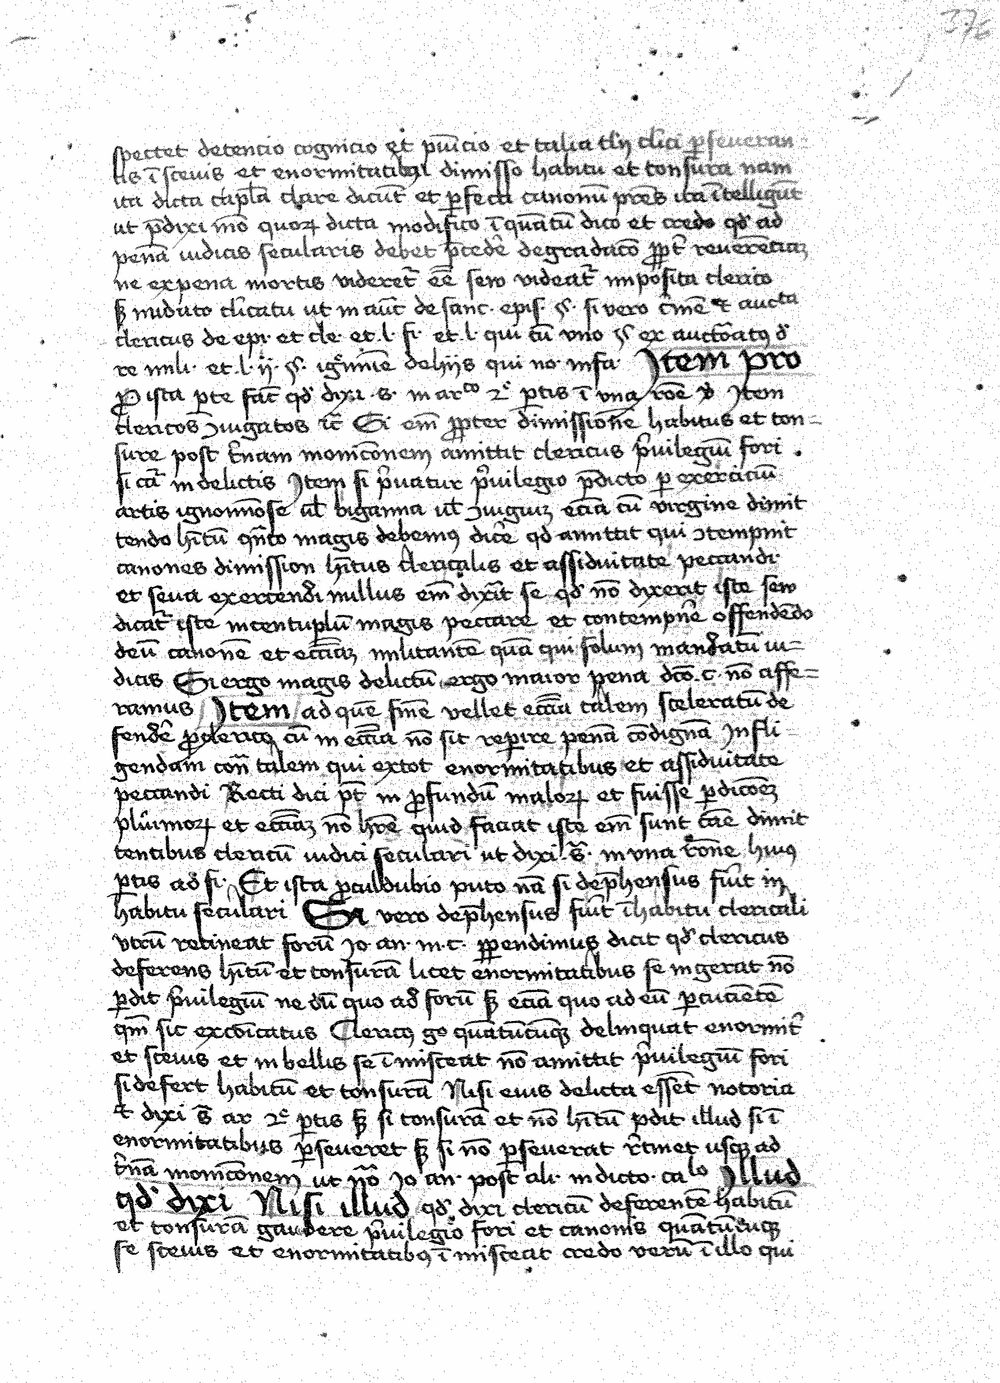 376
spectet detencio cognicio et pūicio et talia tn̄ clīci ꝑseueran=
tis ī sceuis et enormitatibꝫ dimisso habitu et tonsura nam
ita dicta capl̄a clare dicūt et ꝑfecti canonū pr̄es ita ītelligūt
ut p̄dixi īmo quoꝝ dicta modifico ī quātū dico et credo qd̕ ad
penā iudicis secularis debet p̄cedē degradacō ꝓpt̕ reuerēciaꝫ
ne ex pena mortis videret̕ eē seu videat̕ imposita clerico
sꝫ nudato cl̄icatu ut in aut̄ de sanc. epis. §. si vero c̄mē et aucta
clericus de epi. et cle. et l. fi. et l. qui cū vno § ex auctōatꝫ d̕
re mili. et l. ij. §. ignīmē de hijs qui no. infa. Item pro
ꝓ ista ꝑte fac̄ qd̕ dixi .s. in arco 2e ꝑtis ī vna rōe ꝟ Item
clericos ɔiugatos ic̄ Si em̄ ꝓpter dimissionē habitus et ton=
sure post t̄nam monic̄onem amittit clericus p̄uilegiū fori
si cā in delictis Item si p̄uatur p̄uilegio p̄dicto ꝑ exerciciū
artis ignomōse ul̄ bigamia ul̄ ɔiugiuꝫ eciā cū virgine dimit
tendo hītū qn̄to magis debemꝰ dicē qd amittit qui ɔtempnit
canones dimission hītus clericalis et assiduitate peccandi
et seua exercendi nullus em̄ dixit̄ se qd̕ nō dixerit iste seu
dicat̕ iste in centuplū magis peccare et contempnē offendēdo
deū canonē et ecciāꝫ militantē quā qui solum mandatū iu=
dicis Si ergo magis delictū ergo maior pena dco. c. nō affe=
ramus Item ad quē finē vellet ecciā talem sceleratū de
fendē ꝓ clerico cū in ecciā nō sit reꝑire penā cōdignā Infli=
gendam con̄ talem qui ex tot enormitatibus et assiduitate
peccandi Recti dici pt̄ in ꝓfundū maloꝝ et fuisse ꝑdicōeꝫ
plūimoꝝ et ecciāꝫ nō hr̄e quid faciat iste em̄ sunt cāe dimit
tentibus clericū iudici seculari ut dixi s̄. in vna rōne huiꝰ
ꝑtis ad fi. Et ista ꝓculdubio puto nā si dep̄hensus fūit in
habitu seculari Si vero dep̄hensus fūit ī habitu clericali
vtrū retineat forū Io. an. in. c. ꝑpendimus dicit qd̕ clericus
deferens hītū et tonsurā licet enormitatibus se ingerat nō
ꝑdit p̄uilegiū ne dū quo ad forū sꝫ eciā quo ad eū ꝑcucientē
qm̄ sic excōicatus Clericꝰ go quātūcūqꝫ delinquat enormit̕
et sceuis et in bellis se ī misceat nō amittit p̄uilegiū fori
si defert habitū et tonsurā Nisi eius delicta essēt notoria
et dixi s̄ ar 2e ꝑtis sꝫ si tonsurā et nō hītū ꝑdit illud si ī
enormitatibus ꝑseueret sꝫ si nō ꝑseuerat r̄tinet usqꝫ ad
t̄nā monic̄onem ut no Io an. post ali. in dicto. calo Illud
qd̕ dixi Nisi illud qd̕ dixi clericū deferentē habitū
et tonsurā gaudere p̄uilegio fori et canonis quātūcūqꝫ
se sceuis et enormitatibꝰ ī misceat credo verū ī illo qui